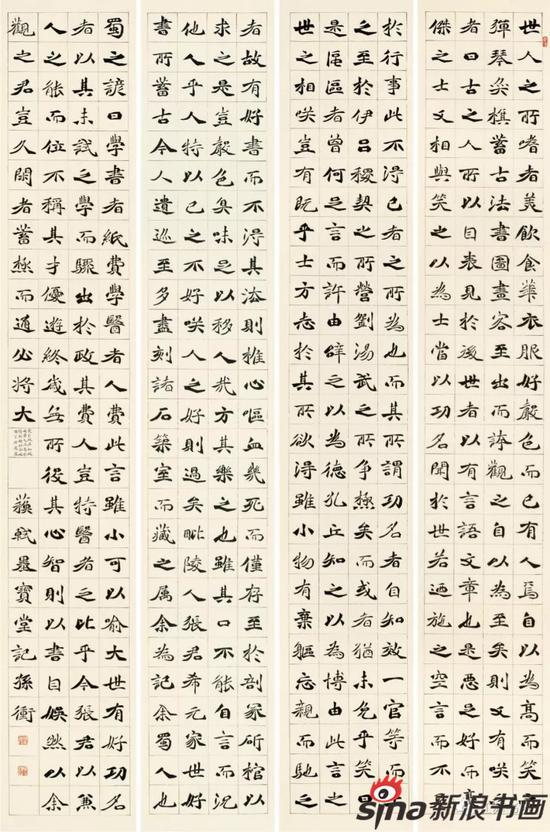 世人之所耆者美飲食華衣服好聲色而已有人焉自以為高而笑
彈琴弈棋蓄古法書圖畫客至出而誇觀之自以為至矣則又有笑
者曰古之人所以自表見於後世者以有言語文章也是惡足好而豪
傑之士又相與笑之以為士當以功名聞於世若迺施之空言而不見
於行事此不得已者之所為也而其所謂功名者自知效一官等而
之至於伊呂稷契之所營劉湯武之所爭極矣而或者猶未免乎笑曰
是區區者曾何足言而許由辭之以為德孔丘知之以為博由此言之
世之相笑豈有既乎士方志於其所欲得雖小物有棄軀忘親而馳之
者故有好書而不得其法則椎心嘔血幾死而僅存至於剖冢斫棺以
求之是豈聲色臭味足以移人哉方其樂之也雖其口不能自言而況
他人乎人特以己之不好笑人之好則過矣毗陵人張君希元家世好
書所蓄古今人遺迹至多盡刻諸石築室而藏之属余為記余蜀人也
蜀之諺曰學書者紙費學醫者人費此言雖小可以喻大世有好功名
者以其未試之學而驟出於政其費人豈特醫者之比乎今張君以兼
人之能而位不稱其才優遊終歲無所役其心智則以書自娛然以余
觀之君豈久閑者蓄極而通必將大
蘇軾墨寶堂記孫衝
sina新浪书画